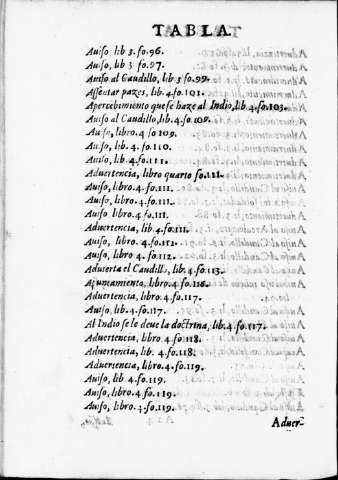 TABLA.
Auiso, lib 3. fo.96.
Auiso, lib 3 fo.97.
Auiso al Caudillo, lib 3 fo.99.
Assentar pazes, lib.4.fo.101.
Apercebimiento que se haze al Indio, lib.4.fo.103.
Auiso al Caudillo, lib.4.fo.109.
Auiso, libro.4 fo 109.
Auiso, lib.4. fo.110.
Auiso, lib 4.fo.111.
Aduertencia, libro quarto fo.111.
Auiso, libro.4.fo.111.
Auiso, libro.4.fo.111.
Auiso libro.4.fo.111.
Aduertencia, lib 4.fo.111.
Auiso, libro 4.fo.112.
Auiso, libro 4. fo.112.
Aduierta el Caudillo, lib.4.fo.113.
libro.4.fo.116.
Aduertencia, libro, 4.fo.117.
Auiso, lib.4 fo.117.
Al Indio se le deue la doctrina, lib.4.fo.117.
Aduertencia, libro 4.fo.118.
Aduertencia, lib.4.fo.118.
Aduertencia, libro 4.fo.119.
Auiso, lib 4.fo.119.
Auiso, libro.4.fo.119.
Auiso, libro.4.fo.119.
Aduer-